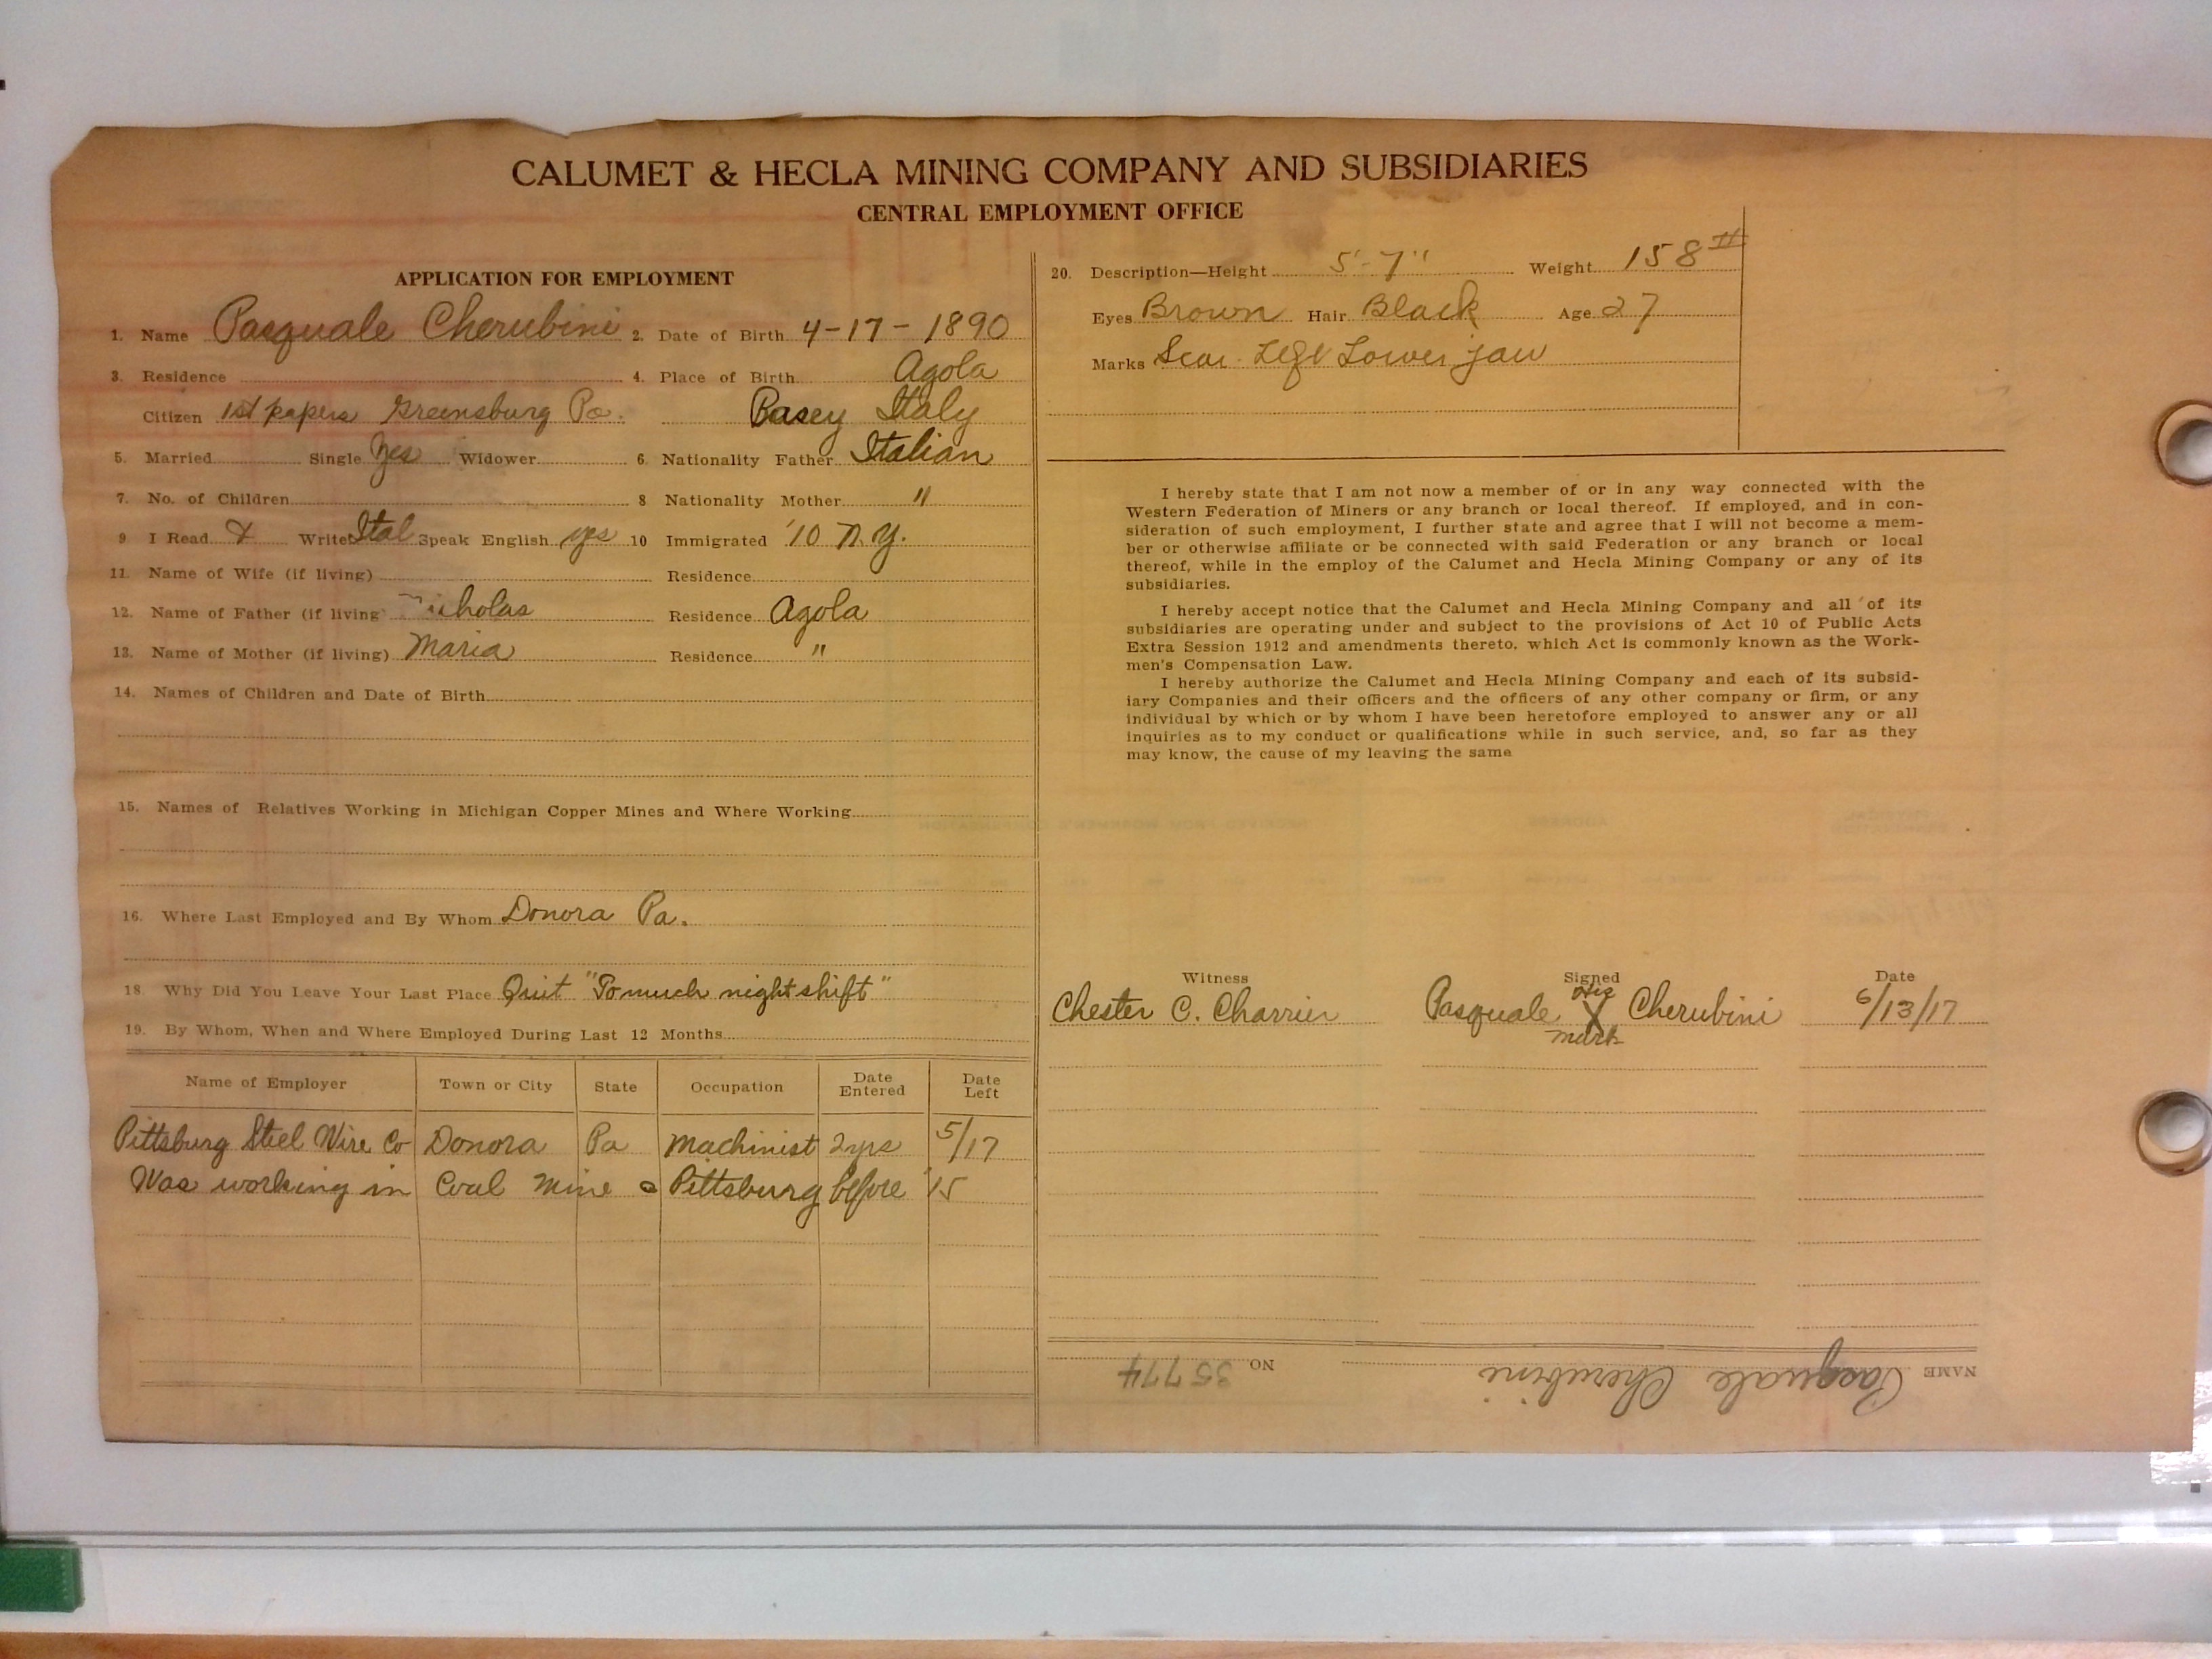 CALUMET & HECLA MINING COMPANY AND SUBSIDIARIES
CENTRAL EMPLOYMENT OFFICE
APPLICATION FOR EMPLOYMENT
1. Name Pasquale Cherubini 2. Date of Birth 4-17-1890
3. Residence 4. Place of Birth Agola
Citizen 1st papers Greensburg Pa. Pasey Italy
5. Married Single Yes Widower 6. Nationality Father Italian
7. No. of Children 8 Nationality Mother "
9 I Read & Write Ital Speak English yes 10 Immigrated '10 N.Y.
11. Name of Wife (if living) Residence
12. Name of Father (if living) Nicholas Residence Agola
13. Name of Mother (if living) Maria Residence "
14. Names of Children and Date of Birth
15. Names of Relatives Working in Michigan Copper Mines and Where Working
16. Where Last Employed and By Whom Donora Pa.
18. Why Did You Leave Your Last Place Quit "To much night shift"
19. By Whom, When and Where Employed During Last 12 Months
Name of Employer Town or City State Occupation Date Entered Date Left
Pittsburg Steel Wire Co Donora Pa Machinist 2yrs 5/17
Was working in Coal Mine Pittsburg before '15
20. Description—Height 5'-7" Weight 158#
Eyes Brown Hair Black Age 27
Marks Scar Left Lower jaw
I hereby state that I am not now a member of or in any way connected with the
Western Federation of Miners or any branch or local thereof. If employed, and in con-
sideration of such employment, I further state and agree that I will not become a mem-
ber or otherwise affiliate or be connected with said Federation or any branch or local
thereof, while in the employ of the Calumet and Hecla Mining Company or any of its
subsidiaries.
I hereby accept notice that the Calumet and Hecla Mining Company and all of its
subsidiaries are operating under and subject to the provisions of Act 10 of Public Acts
Extra Session 1912 and amendments thereto, which Act is commonly known as the Work-
men's Compensation Law.
I hereby authorize the Calumet and Hecla Mining Company and each of its subsid-
iary Companies and their officers and the officers of any other company or firm, or any
individual by which or by whom I have been heretofore employed to answer any or all
inquiries as to my conduct or qualifications while in such service, and, so far as they
may know, the cause of my leaving the same
Witness Signed Date
Chester C. Charrier Pasquale his X mark Cherubini 6/13/17
NAME Pasquale Cherubini NO 35774